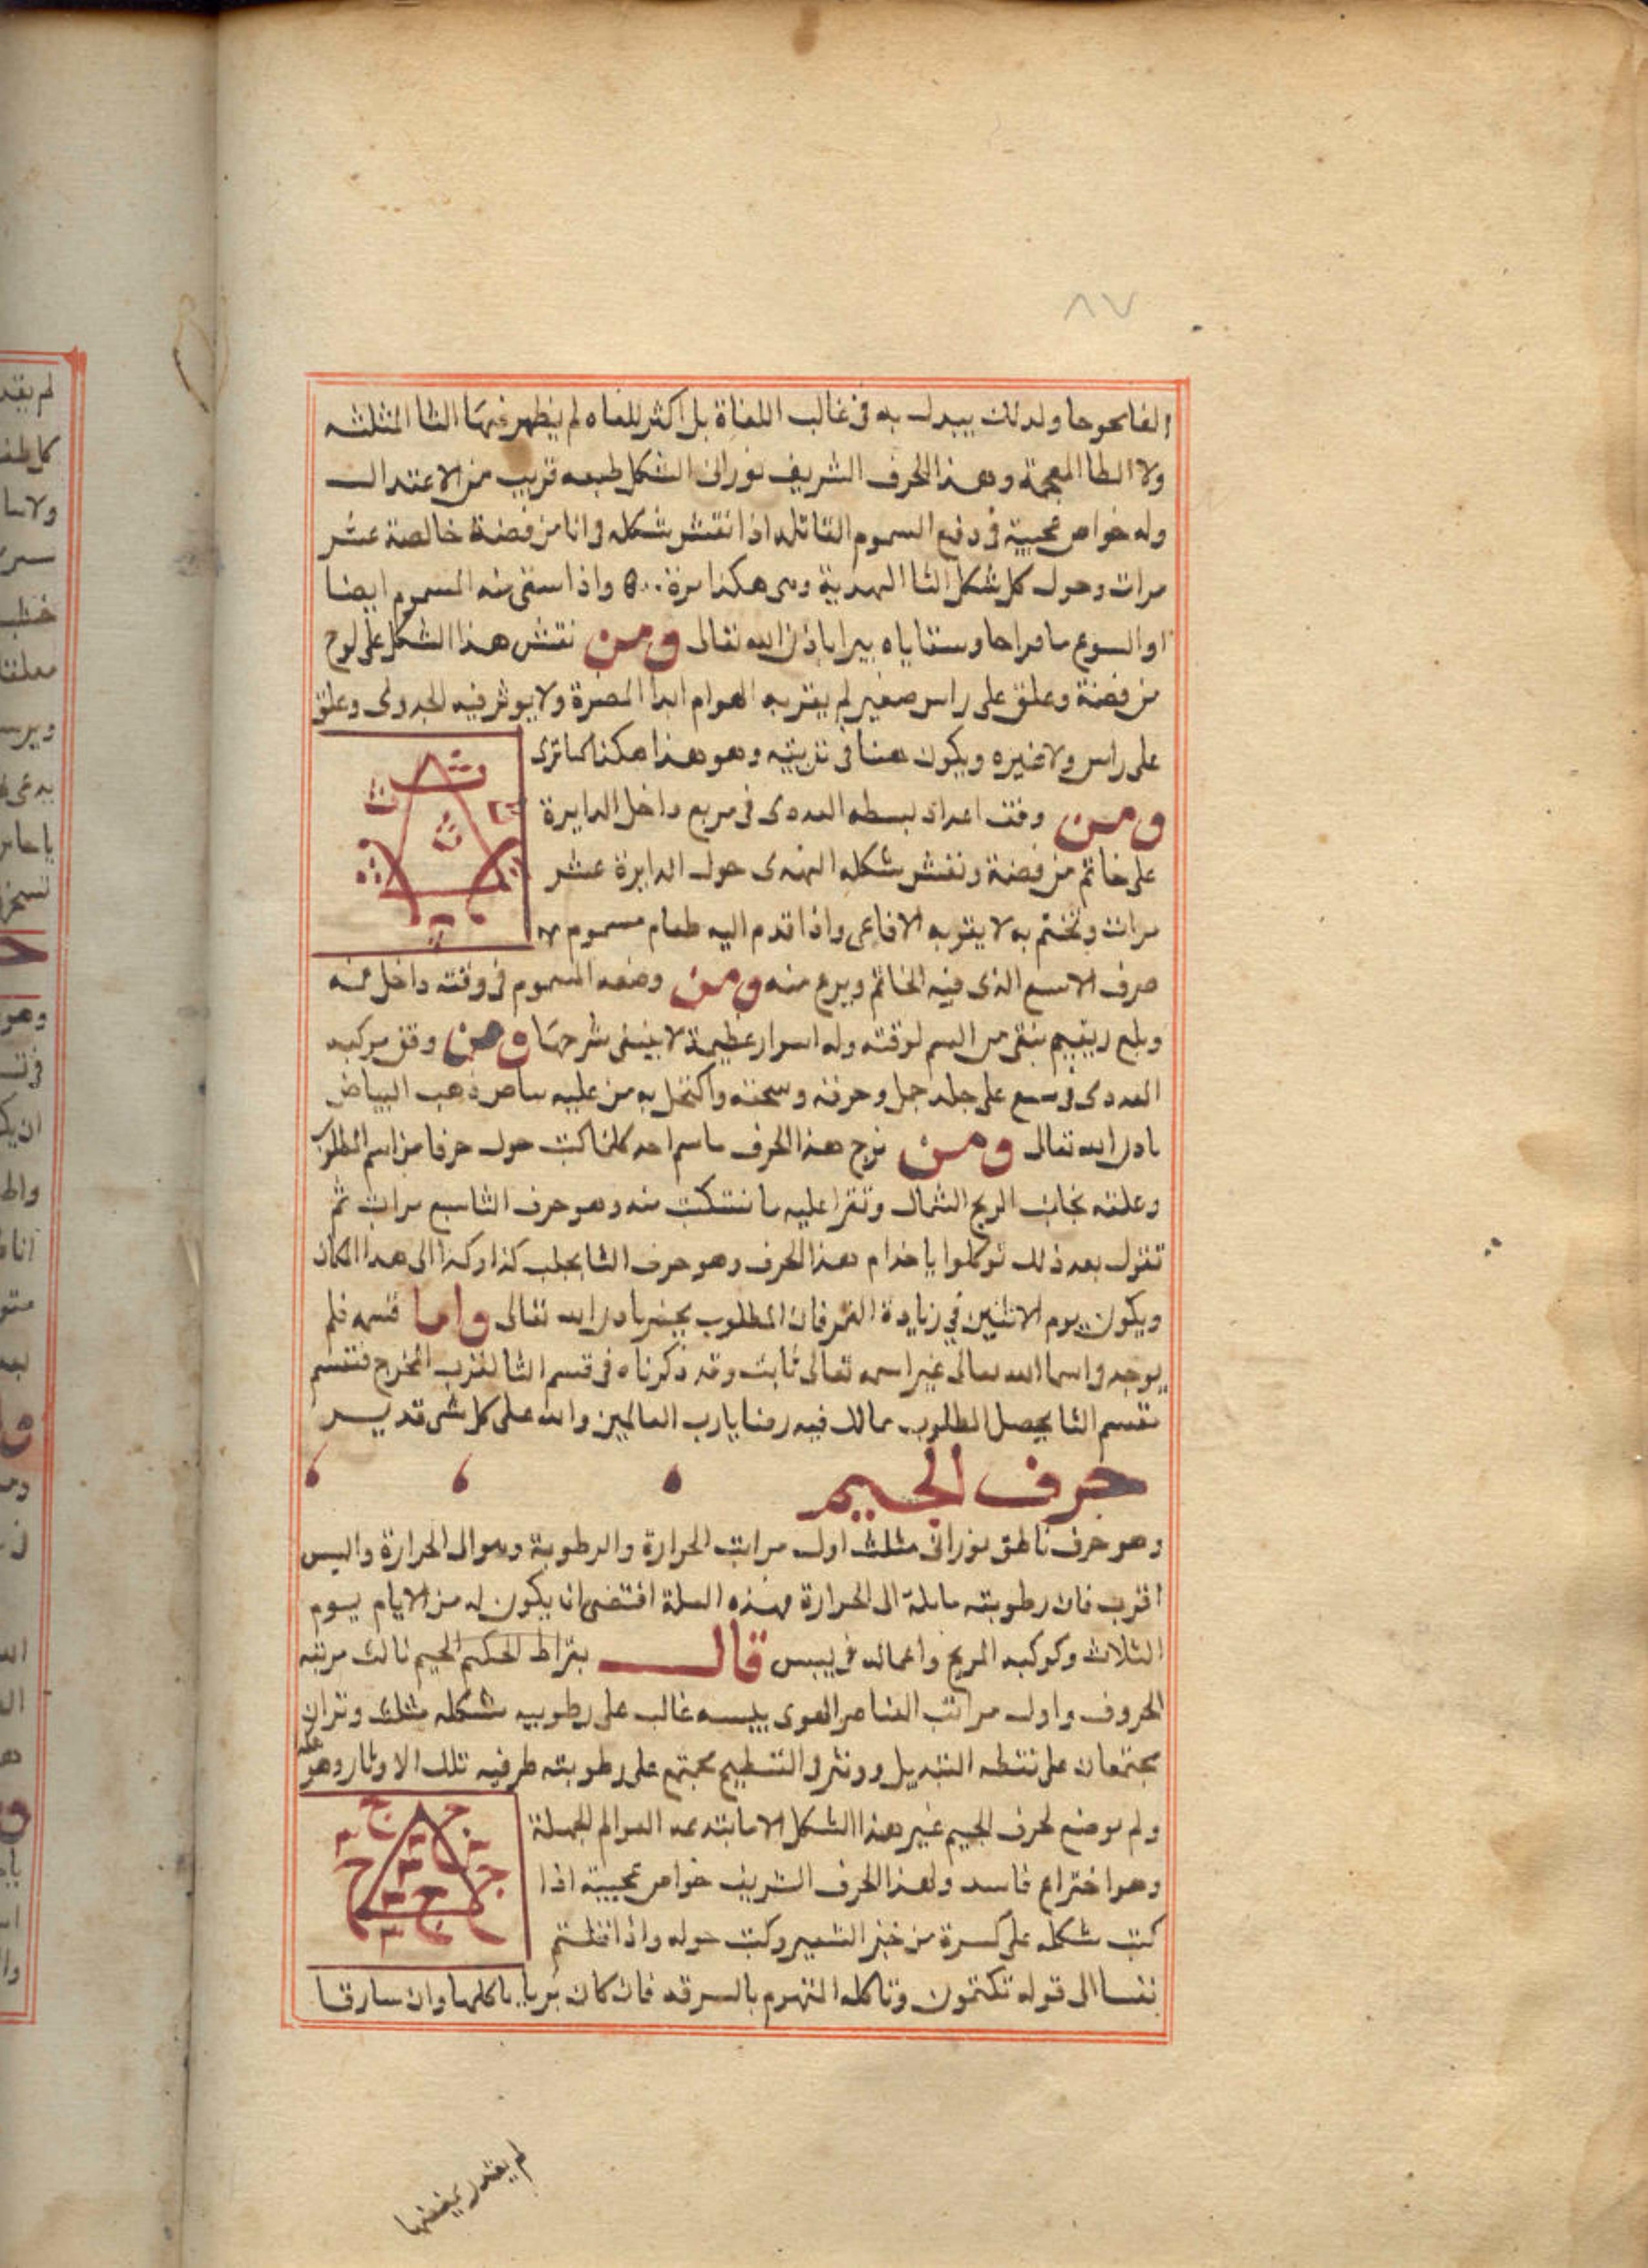 ٨٧
ولذلك يبدل به فى غالب اللغاة بل اكثر اللغاه لم يظهر فيها الثا المثلثه
ولا الظا المعجمة وهذا الحرف الشريف نورانى الشكل طبعه قريب من الاعتدال
وله خواص عجيبة فى دفع السموم القاتله اذا نقش شكله فى انا من فضة خالصة عشر
مرات وحول كل شكل الثا الهندية وهى هكذا مرة ٥٠٠ واذا سقى منه المسموم ايضا
ماء قراحا وسقاياه يبرا باذن الله تعالى ومن نقش هذا الشكل على لوح
من فضة وعلق على راس صغير لم يقربه الهوام ابدا المضرة ولا يوثر فيه الجدرى وعلق
على راس ولا غيره ويكون هنا فى تربيته وهو هذا هكذا كما ترى
ومن وفق اعداد بسطه العددى فى مربع داخل الدايرة
على خاتم من فضة ونقش شكله الهندى حول الدايرة عشر
مرات وتختم به لا يقربه الافاعى واذا قدم اليه طعام مسموم
صرف الاسبع الذى فيه الخاتم ويرع منه ومن وضعه المسموم فى وقته داخل فمه
وبلع ريقه من السم لوقته وله اسرار عظيمة لا ينبغى شرحها ومن وفق مركبه
العددى فى سبع على جلد جمل وحرقه وسحقه واكتحل به من عليه بياض ذهب البياض
باذن الله تعالى ومن مزج هذا الحرف باسم احد كلما كتب حول حرفا من اسم المطلوب
وعلقه بجانب الريح الشمال وتقرا عليه ما تنكتب منه وهو حرف الثا سبع مرات ثم
تقول بعد ذلك توكلوا يا خدام هذا الحرف وهو حرف الثا بجلب كذا وكذا الى هذا المكان
ويكون يوم الاثنين فى زيادة القمر فان المطلوب يحضر باذن الله تعالى واما قسمه فلم
يوجد فى اسما الله تعالى غير اسمه تعالى ثابت وقد ذكرناه فى قسم التا لقرب المخرج فتقسم
بقسم التا يحصل المطلوب مما لك فيه رضا يا رب العالمين والله على كل شى قدير
حرف الجيم
وهو حرف ناطق نورانى مثلث اول مراتب الحرارة والرطوبة وهو الى الحرارة واليبس
اقرب فان رطوبته مايلة الى الحرارة فهذه العلة اقتضى ان يكون له من الايام يوم
الثلاث وكوكبه المريخ واعماله فى يبس قال بقراط الحكيم الجيم ثالث مرتبه
الحروف واول مراتب العناصر القوى يبسه غالب على رطوبيه شكله مثلث وتران
مجتمعان على نقطه التبديل ووتر فى التسطيح مجتمع على رطوبته طرفيه تلك الاوتار وهو
ولم يوضع لحرف الجيم غير هذا الشكل الا ما ابتدعه العوالم الجهلة
وهو اختراع فاسد ولهذا الحرف الشريف خواص عجيبة اذا
كتب شكله على كسرة من خبز الشعير وكتب حوله واذ اقتلتم
نفسا الى قوله تكتمون وتاكله المتهوم بالسرقه فان كان بريا ياكلها وان سارقا
لم يقدر يمضغها